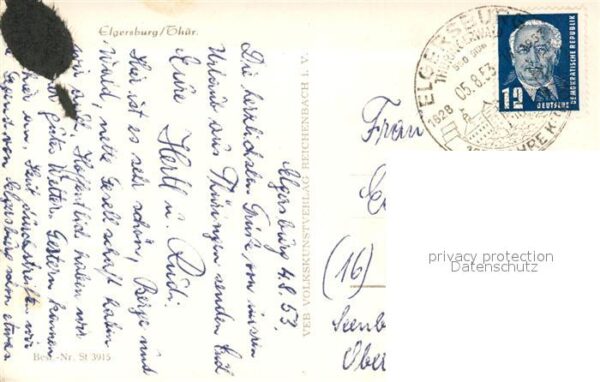 Elgersburg/Thür.
Elgersburg 4.8.53.
Die herzlichsten Grüße von unserem
Urlaub aus Thüringen senden Euch
Eure Hertl u. Rudi.
Hier ist es sehr schön, Berge und
Wald, nette Gesellschaft haben
wir auch. Hoffentlich haben wir
gutes Wetter. Gestern kamen
wir an. Heut durchstreiften wir
Gegend von Elgersburg
Best.-Nr. St 3915
VEB VOLKSKUNSTVERLAG REICHENBACH I. V.
ELGERSBURG
05.8.53
1828
12
DEUTSCHE
DEMOKRATISCHE REPUBLIK
Frau
(16)
Ober
privacy protection
Datenschutz